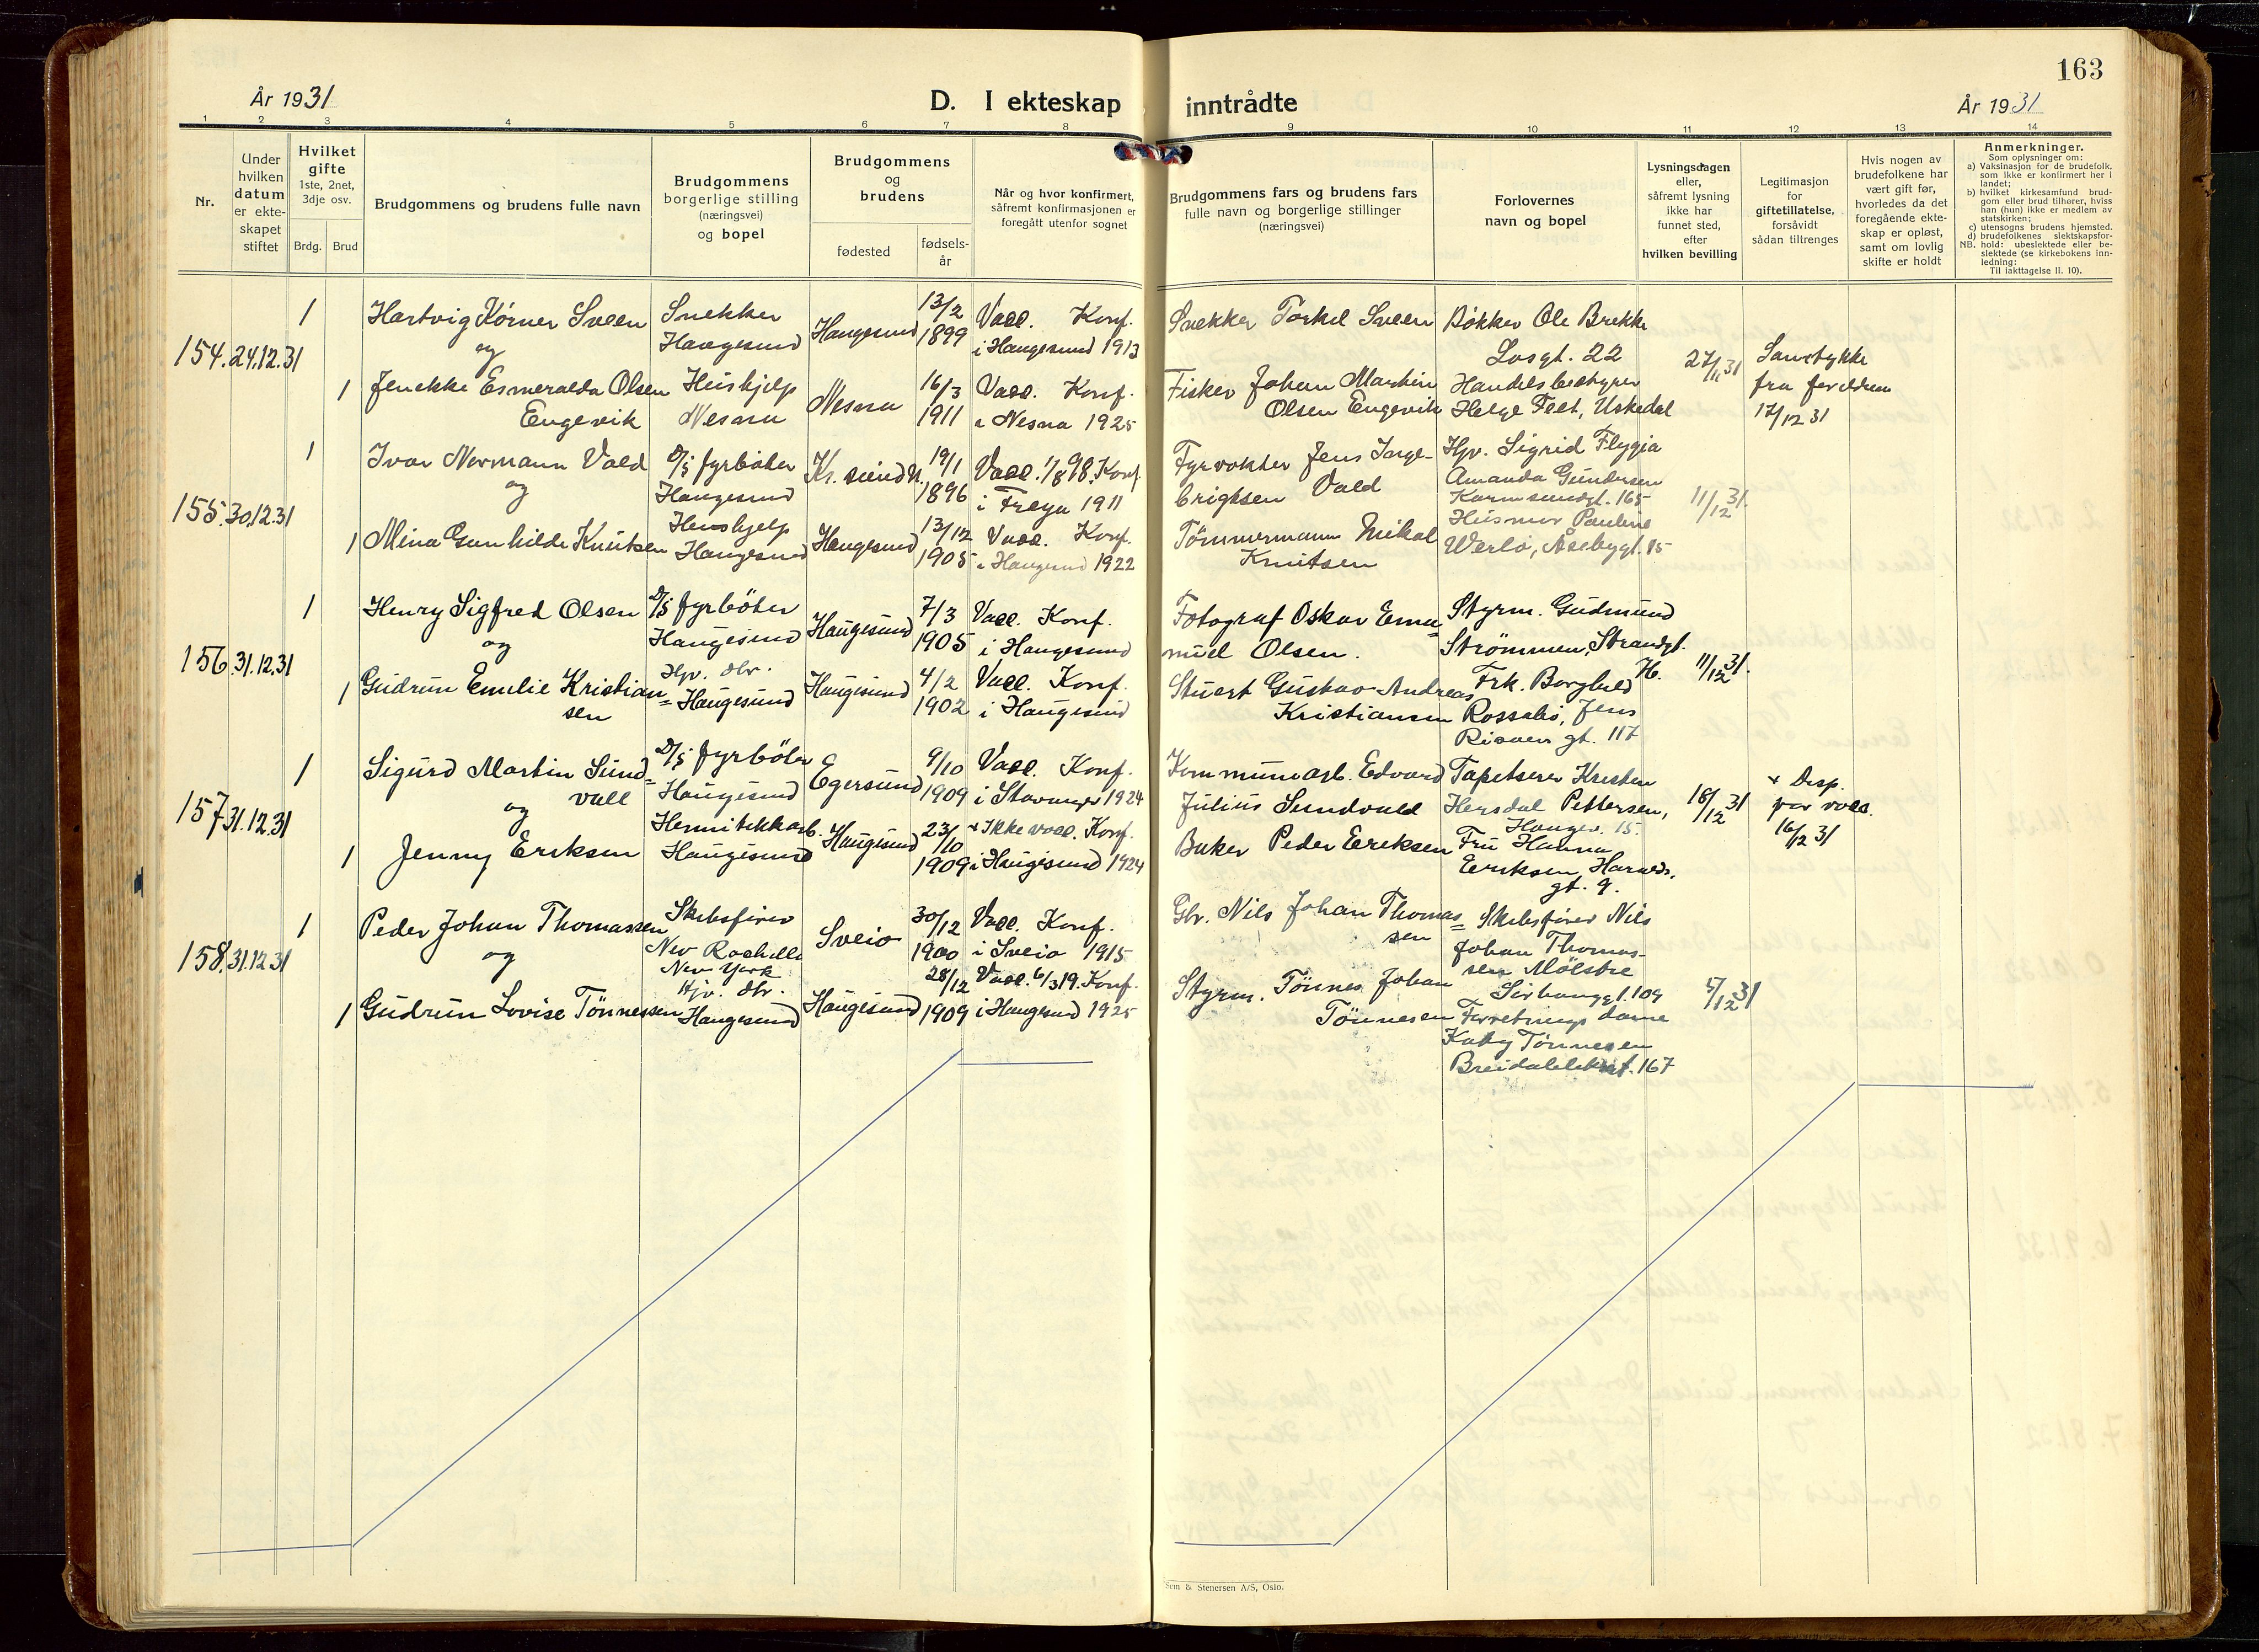 163
År 1931
D. I ekteskap inntrådte
År 1931
1 2 3 4 5 6 7 8 9 10 11 12 13 14
Nr.
Under
hvilken
datum
er ekte-
skapet
stiftet
Hvilket
gifte
1ste, 2net,
3dje osv.
Brdg. Brud
Brudgommens og brudens fulle navn
Brudgommens
borgerlige stilling
(næringsvei)
og bopel
Brudgommens
og
brudens
fødested
fødsels-
år
Når og hvor konfirmert,
såfremt konfirmasjonen er
foregått utenfor sognet
Brudgommens fars og brudens fars
fulle navn og borgerlige stillinger
(næringsvei)
Forlovernes
navn og bopel
Lysningsdagen
eller,
såfremt lysning
ikke har
funnet sted,
efter
hvilken bevilling
Legitimasjon
for
giftetillatelse,
forsåvidt
sådan tiltrenges
Hvis nogen av
brudefolkene har
vært gift før,
hvorledes da det
foregående ekte-
skap er opløst,
samt om lovlig
skifte er holdt
Anmerkninger.
Som oplysninger om:
a) Vaksinasjon for de brudefolk.
som ikke er konfirmert her i
landet;
b) hvilket kirkesamfund brud-
gom eller brud tilhører, hviss
han (hun) ikke er medlem av
statskirken;
c) utensogns brudens hjemsted.
d) brudefolkenes slektskapsfor-
NB. hold: ubeslektede eller be-
slektede (se kirkebokens inn-
ledning:
Til iakttagelse II. 10).
154. 24.12.31
1
Hartvig Körner Sveen
og
Snekker
Haugesund
Haugesund
13/2
1899
Vacc. Konf.
i Haugesund 1913
Snekker Torkel Sveen
Bökker Ole Brekke
Losgt. 22
27/11 31
Samtykke
fra foreldren
17/12 31
1
Jenekke Esmeralda Olsen
Engevik
Hushjelp
Nesna
Nesna
16/3
1911
Vacc. Konf.
i Nesna 1925
Fisker Johan Martin
Olsen Engevik
Handelsbestyrer
Helge Feet, Uskedal
155. 30.12.31
1
Ivar Normann Vold
og
D/s fyrböter
Haugesund
Kr. sund N.
19/1
1896
Vacc. 1/8 98. Konf.
i Freya 1911
Fyrvokter Jens Inge-
brigtsen Vold
Hpv. Sigrid Flygja
Amanda Gundersen
Karmsundgt. 165
11/12 31.
1
Mina Gunhilde Knutsen
Hushjelp
Haugesund
Haugesund
13/12
1905
Vacc. Konf.
i Haugesund 1922
Tömmermann Mikal
Knutsen
Husmor Pauline
Werlo, Åsebygt. 15
156. 31.12.31
1
Henry Sigfred Olsen
og
D/s fyrböter
Haugesund
Haugesund
7/3
1905
Vacc. Konf.
i Haugesund
Fotograf Oskar Ema=
nuel Olsen.
Styrm. Gudmund
Strömmen, Strandgt.
11/12 31.
1
Gudrun Emelie Kristian=
sen
Hpv. dtr.
Haugesund
Haugesund
4/2
1902
Vacc. Konf.
i Haugesund
Stuert Gustav Andreas
Kristiansen
Frk. Borghild H.
Rossabö, Jens
Risoen gt. 117
157. 31.12.31
1
Sigurd Martin Sund=
vall
og
D/s fyrböter
Haugesund
Egersund
9/10
1909
Vacc. Konf.
i Stavanger 1924
Kommunearb. Edvard
Julius Sundvold
Tapetserer Kristen
Hersdal Pettersen,
Hauger. 15.
18/12 31
+ Disp.
for vacc.
16/12 31
1
Jenny Eriksen
Hermitikkarb.
Haugesund
Haugesund
23/10
1909
+ Ikke vacc. Konf.
i Haugesund 1924
Baker Peder Eriksen
Fru Hanna
Eriksen, Haralds.
gt. 9.
158. 31.12.31
1
Peder Johan Thomassen
og
Skibsförer
New Rochelle
New York
Sveio
30/12
1900
Vacc. Konf.
i Sveio 1915
Gbr. Nils Johan Thomas=
sen
Skibsförer Nils
Johan Thomas-
sen Mölstre
Sörhauggt. 109
5/12 31
1
Gudrun Lovise Tönnessen
Hjv. dtr.
Haugesund
Haugesund
28/12
1909
Vacc. 6/3 19. Konf.
i Haugesund 1925
Styrm. Tönnes Johan
Tönnesen
Forretnings dame
Katy Tönnesen
Breidablikgt. 167
Sem & Stenersen A/S, Oslo.